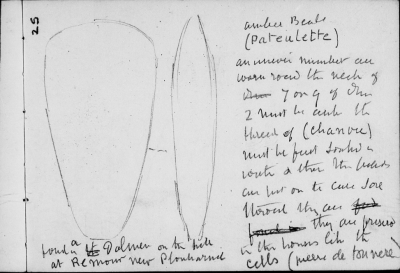 25
amber Beads
(Pateulette)
an uneven number are
worn round the neck of
7 or 9 of
2 must be and the
thread of (chanvre)
must be first
water & then the beads
are put on to cure sore
throat they are
they are preserved
in the houses like the
celts (pierre de tonnerre)
found a Dolmen on the hill
at Remour near Plouharnel